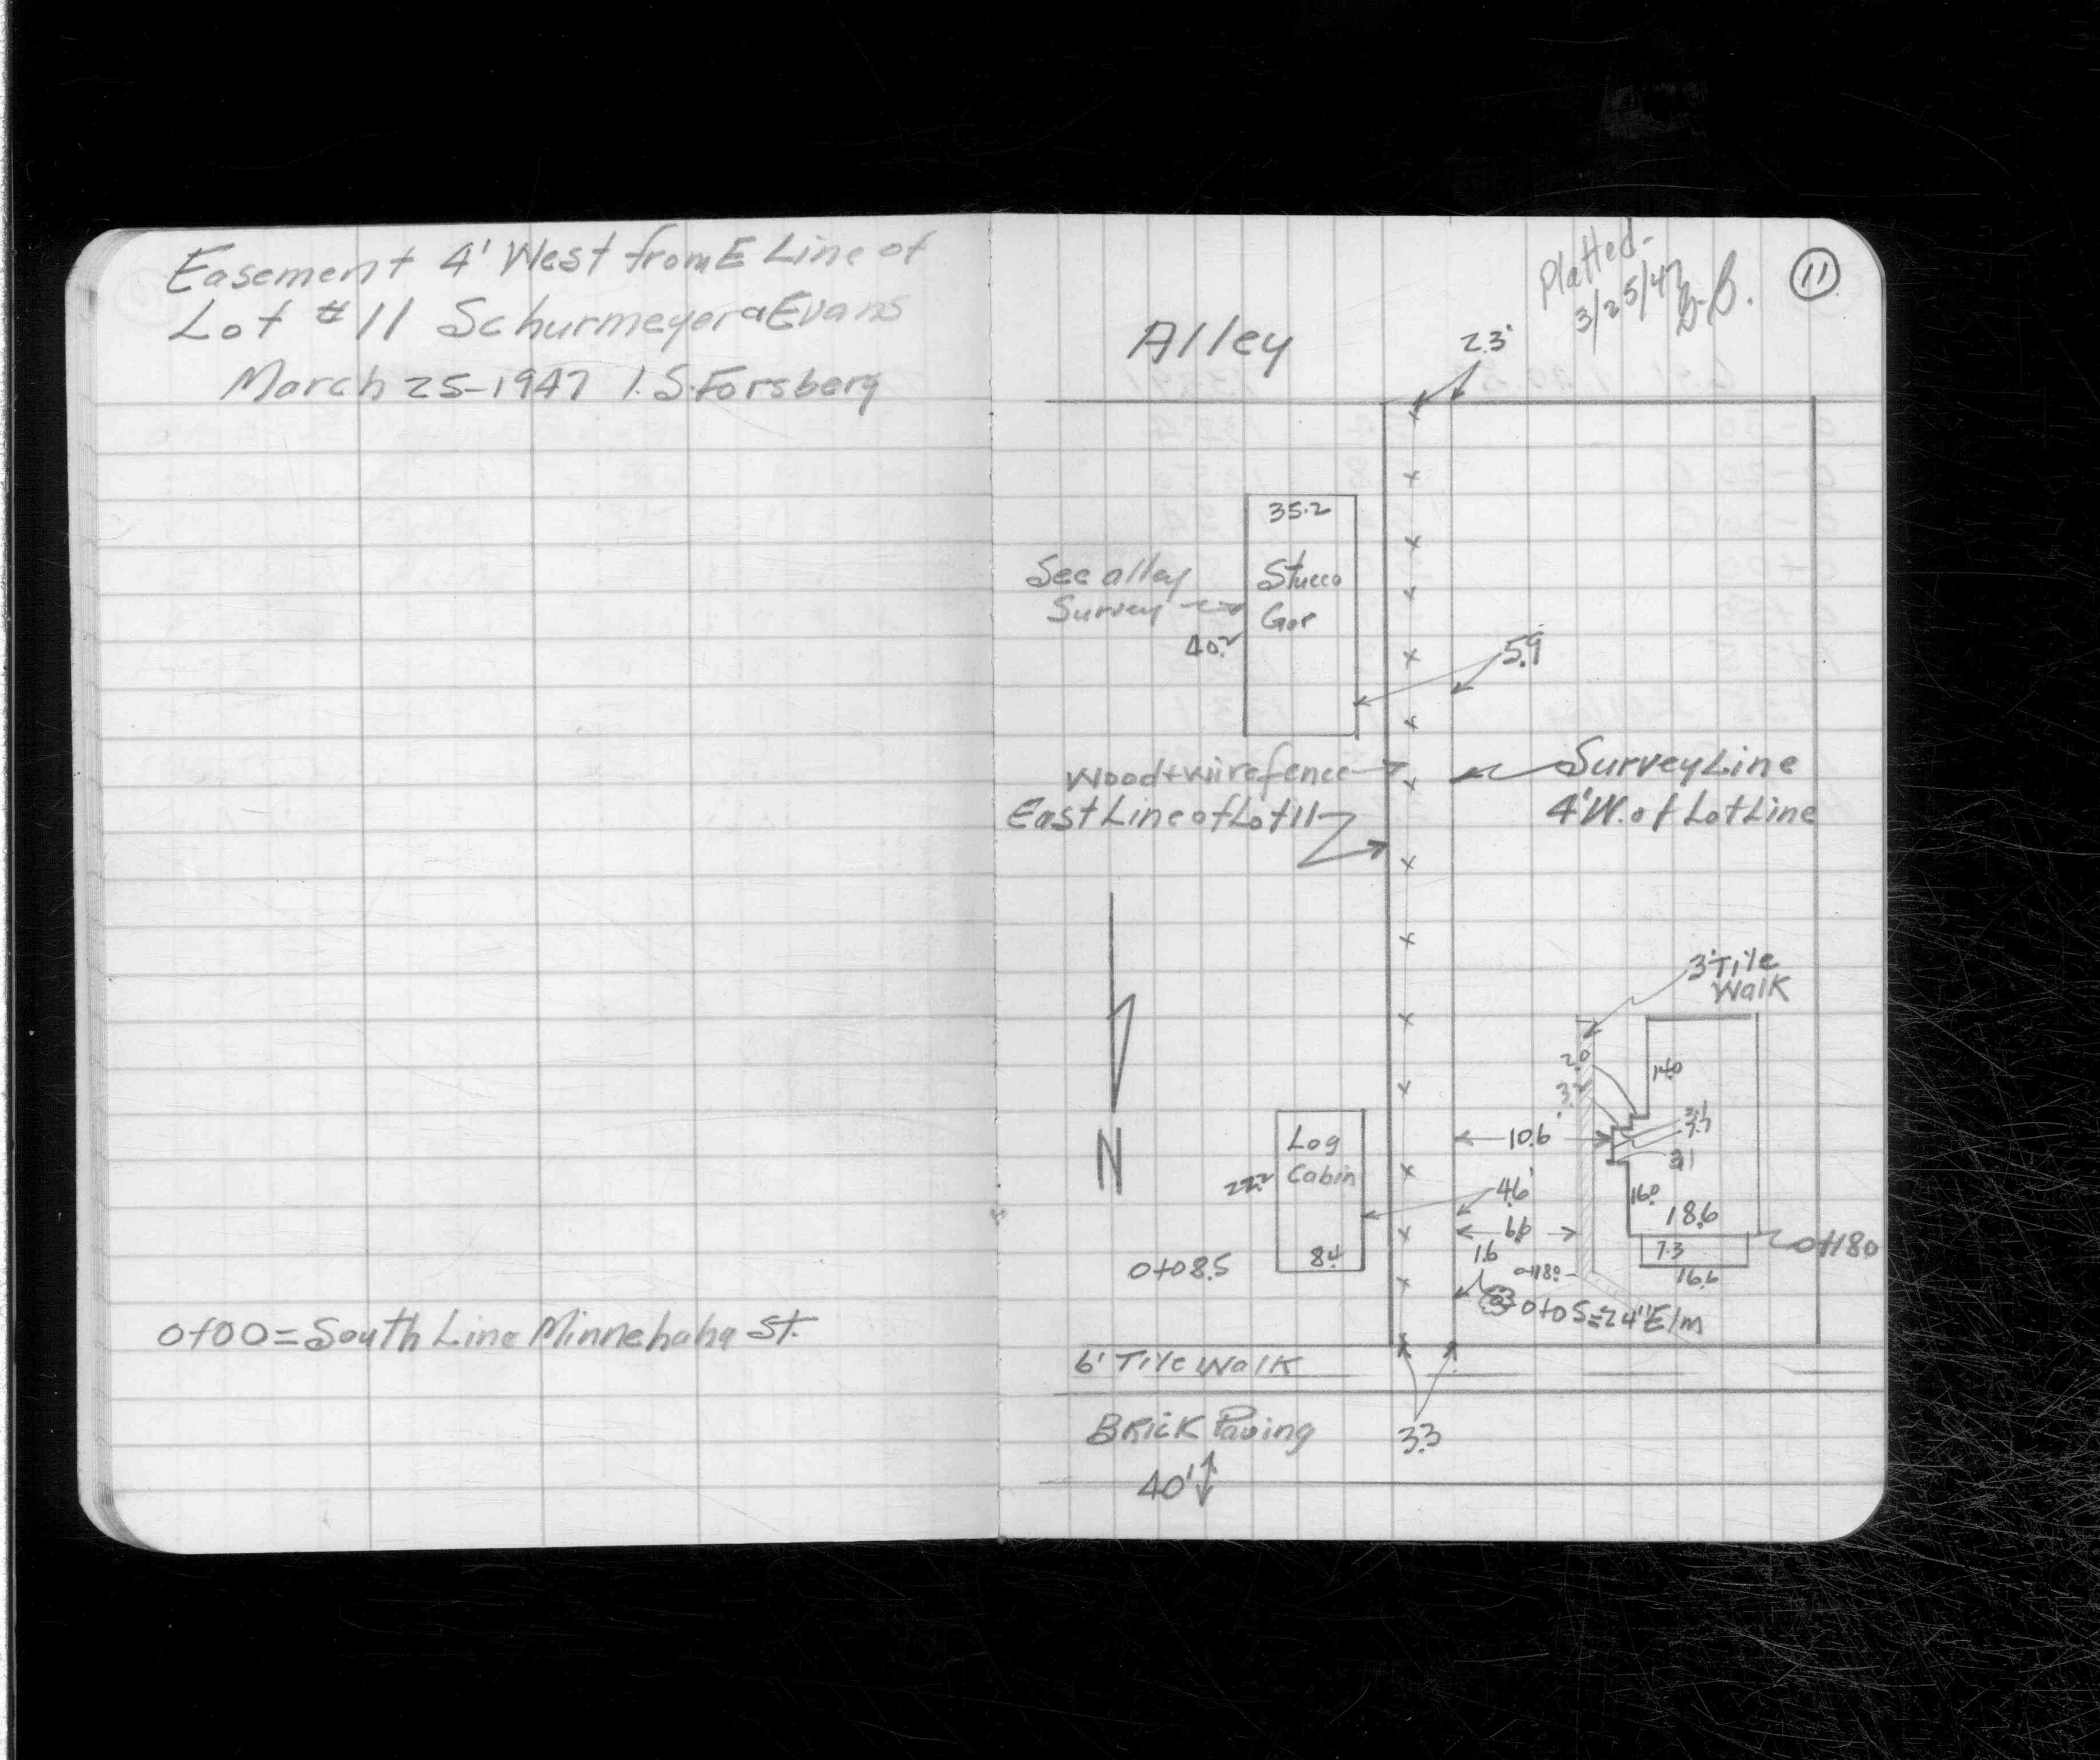 Easement 4' West from E Line of
Lot #11 Schurmeyer & Evans
March 25-1947 I.S. Forsberg
0+00 = South Line Minnehaha St.
11
Platted-
3/25/47
Alley
2.3'
35.2
Stucco
Gar
See alley
Survey
40.2
5.9
Wood + wire fence
East Line of Lot 11
Survey Line
4' W. of Lot Line
3' Tile
Walk
N
2.0
3.2
14.0
Log
Cabin
22.2
8.4
10.6'
3.1
4.6'
16.0
18.6
6.6
1.6
7.3
16.6
0+18.0
0+18.0
0+08.5
0+05 = 24" Elm
6' Tile Walk
Brick Paving
40'
3.3